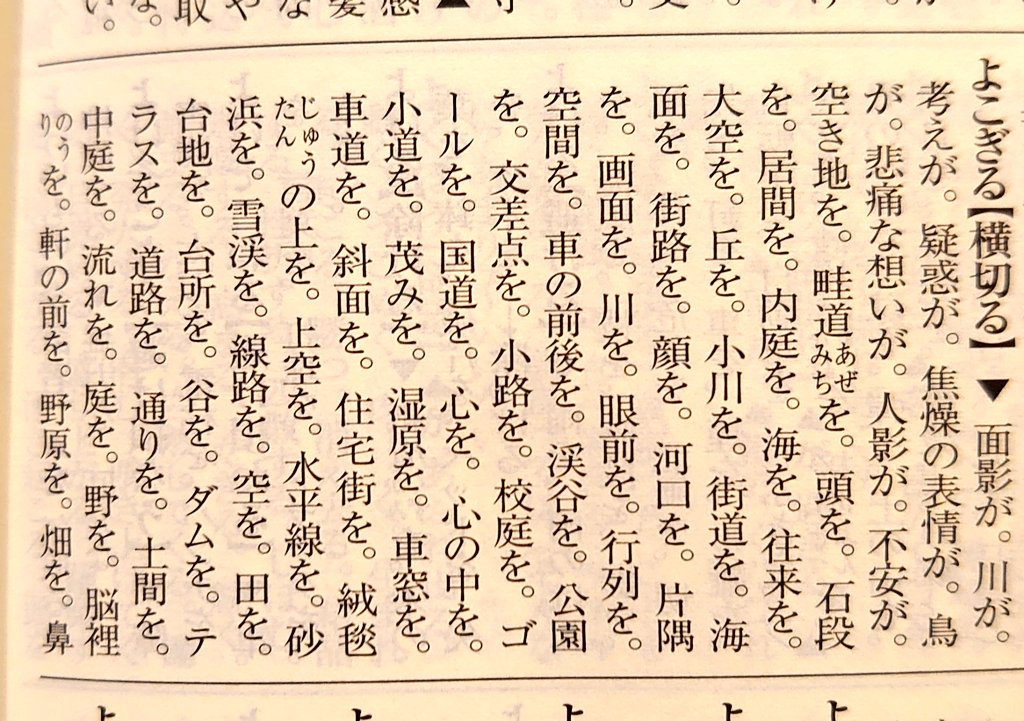 よこぎる【横切る】▼面影が。川が。
考えが。疑惑が。焦燥の表情が。鳥
が。悲痛な想いが。人影が。不安が。
空き地を。畦道あぜみちを。頭を。石段
を。居間を。内庭を。海を。往来を。
大空を。丘を。小川を。街道を。海
面を。街路を。顔を。河口を。片隅
を。画面を。川を。眼前を。行列を。
空間を。車の前後を。渓谷を。公園
を。交差点を。小路を。校庭を。ゴ
ールを。国道を。心を。心の中を。
小道を。茂みを。湿原を。車窓を。
車道を。斜面を。住宅街を。絨毯
じゅうたんの上を。上空を。水平線を。砂
浜を。雪渓を。線路を。空を。田を。
台地を。台所を。谷を。ダムを。テ
ラスを。道路を。通りを。土間を。
中庭を。流れを。庭を。野を。脳裡
のうりを。軒の前を。野原を。畑を。鼻